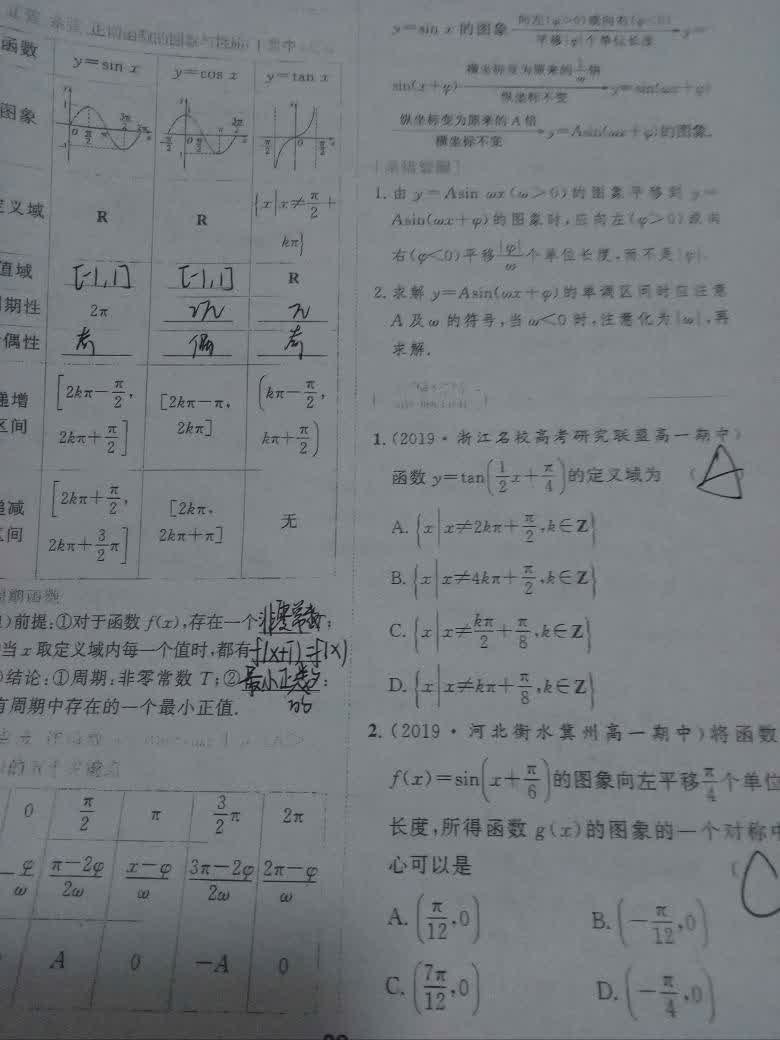 函数 y=sin x y=cos x y=tan x
图象
义域 R R {x|x≠π/2+kπ}
值域 [-1,1] [-1,1] R
期性 2π 2π π
偶性 奇 偶 奇
递增区间 [2kπ-π/2, 2kπ+π/2] [2kπ-π, 2kπ] (kπ-π/2, kπ+π/2)
递减区间 [2kπ+π/2, 2kπ+3/2π] [2kπ, 2kπ+π] 无
周期函数
)前提:①对于函数 f(x),存在一个非零常数T;
当 x 取定义域内每一个值时,都有f(x+T)=f(x)
结论:①周期:非零常数 T;②最小正
有周期中存在的一个最小正值.
0 π/2 π 3/2π 2π
-φ/ω π-2φ/2ω x-φ/ω 3π-2φ/2ω 2π-φ/ω
A 0 -A 0
y=sin x 的图象 向左(φ>0)或向右(φ<0) 平移|φ|个单位长度 y=
sin(x+φ) 横坐标变为原来的1/ω倍 纵坐标不变 y=sin(ωx+φ)
纵坐标变为原来的 A 倍 横坐标不变 y=Asin(ωx+φ)的图象.
1. 由 y=Asin ωx(ω>0)的图象平移到 y=
Asin(ωx+φ)的图象时,应向左(φ>0)或向
右(φ<0)平移|φ|/ω个单位长度,而不是|φ|.
2. 求解 y=Asin(ωx+φ)的单调区间时应注意
A 及 ω 的符号,当 ω<0 时,注意化为|ω|,再
求解.
1. (2019·浙江名校高考研究联盟高一期中)
函数 y=tan(1/2x+π/4)的定义域为 ( A
A. {x|x≠2kπ+π/2,k∈Z}
B. {x|x≠4kπ+π/2,k∈Z}
C. {x|x≠kπ/2+π/8,k∈Z}
D. {x|x≠kπ+π/8,k∈Z}
2. (2019·河北衡水冀州高一期中)将函数
f(x)=sin(x+π/6)的图象向左平移π/4个单位
长度,所得函数 g(x)的图象的一个对称中
心可以是 (
A. (π/12,0) B. (-π/12,0)
C. (7π/12,0) D. (-π/4,0)